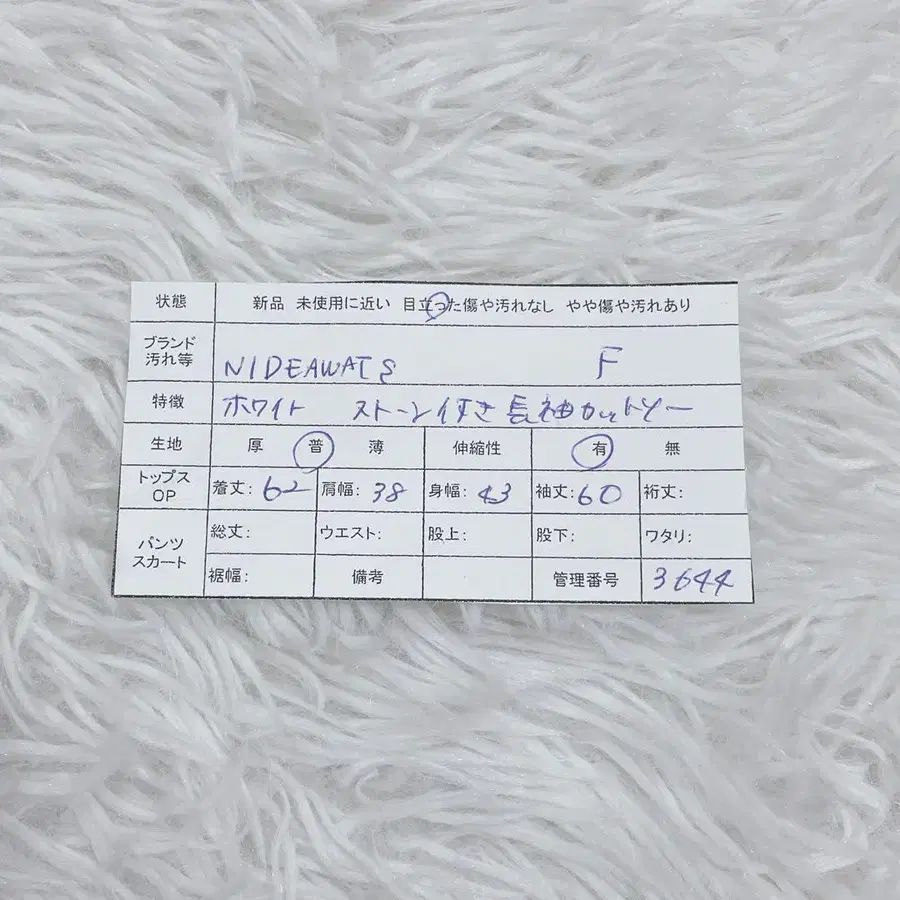 状態 新品 未使用に近い 目立った傷や汚れなし やや傷や汚れあり
ブランド 汚れ等 NIDEAWATS F
特徴 ホワイト ストーン付き長袖カットソー
生地 厚 普 薄 伸縮性 有 無
トップス OP 着丈:62 肩幅:38 身幅:43 袖丈:60 裄丈:
パンツ スカート 総丈: ウエスト: 股上: 股下: ワタリ:
裾幅: 備考 管理番号 3644